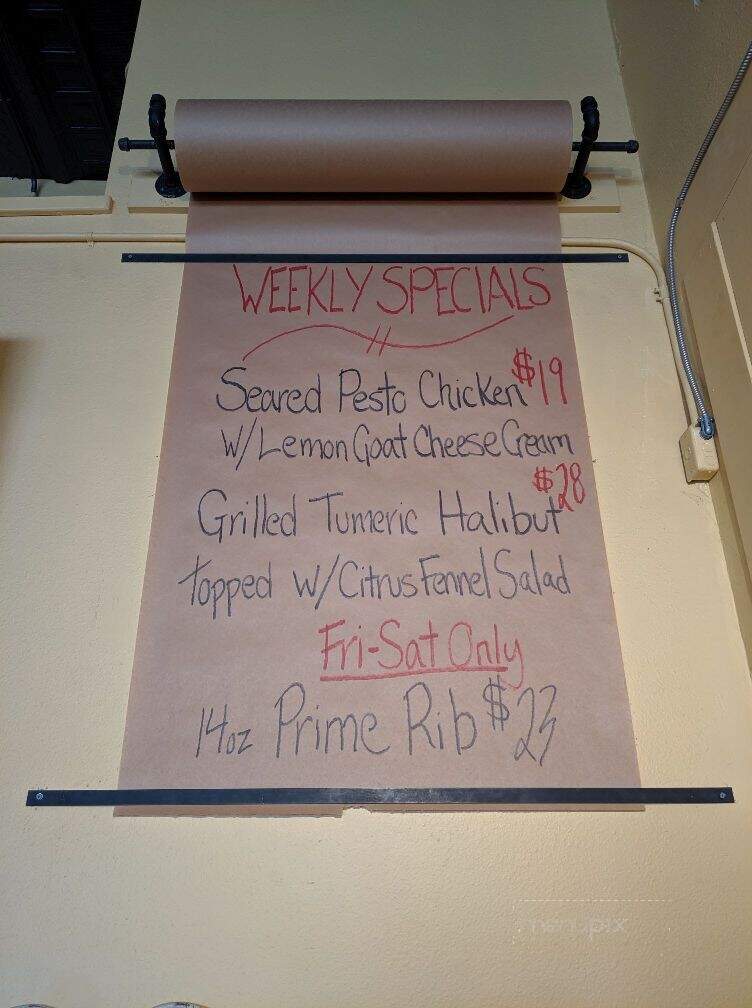 WEEKLY SPECIALS
Seared Pesto Chicken $19
W/Lemon Goat Cheese Cream
$28
Grilled Tumeric Halibut
topped w/Citrus Fennel Salad
Fri-Sat Only
14oz Prime Rib $23
menupix